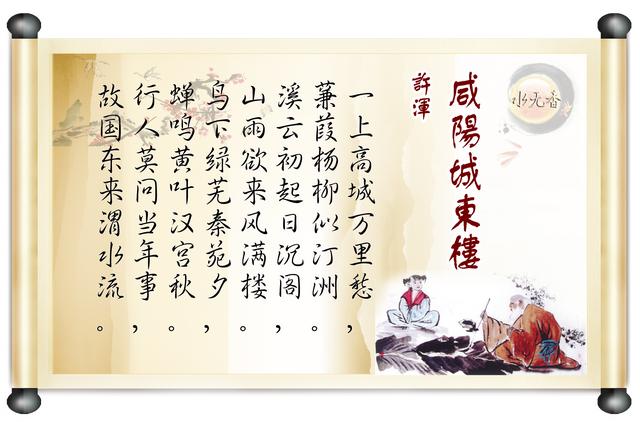 水无香
咸陽城東樓
許渾
一上高城万里愁，
蒹葭杨柳似汀洲。
溪云初起日沉阁，
山雨欲来风满楼。
鸟下绿芜秦苑夕，
蝉鸣黄叶汉宫秋。
行人莫问当年事，
故国东来渭水流。